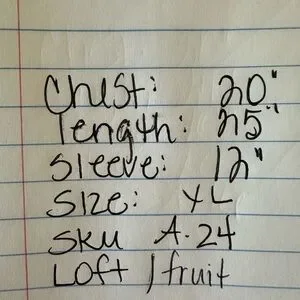 Chest: 20"
length: 25"
Sleeve: 12"
Size: XL
SKU A.24
Loft / fruit